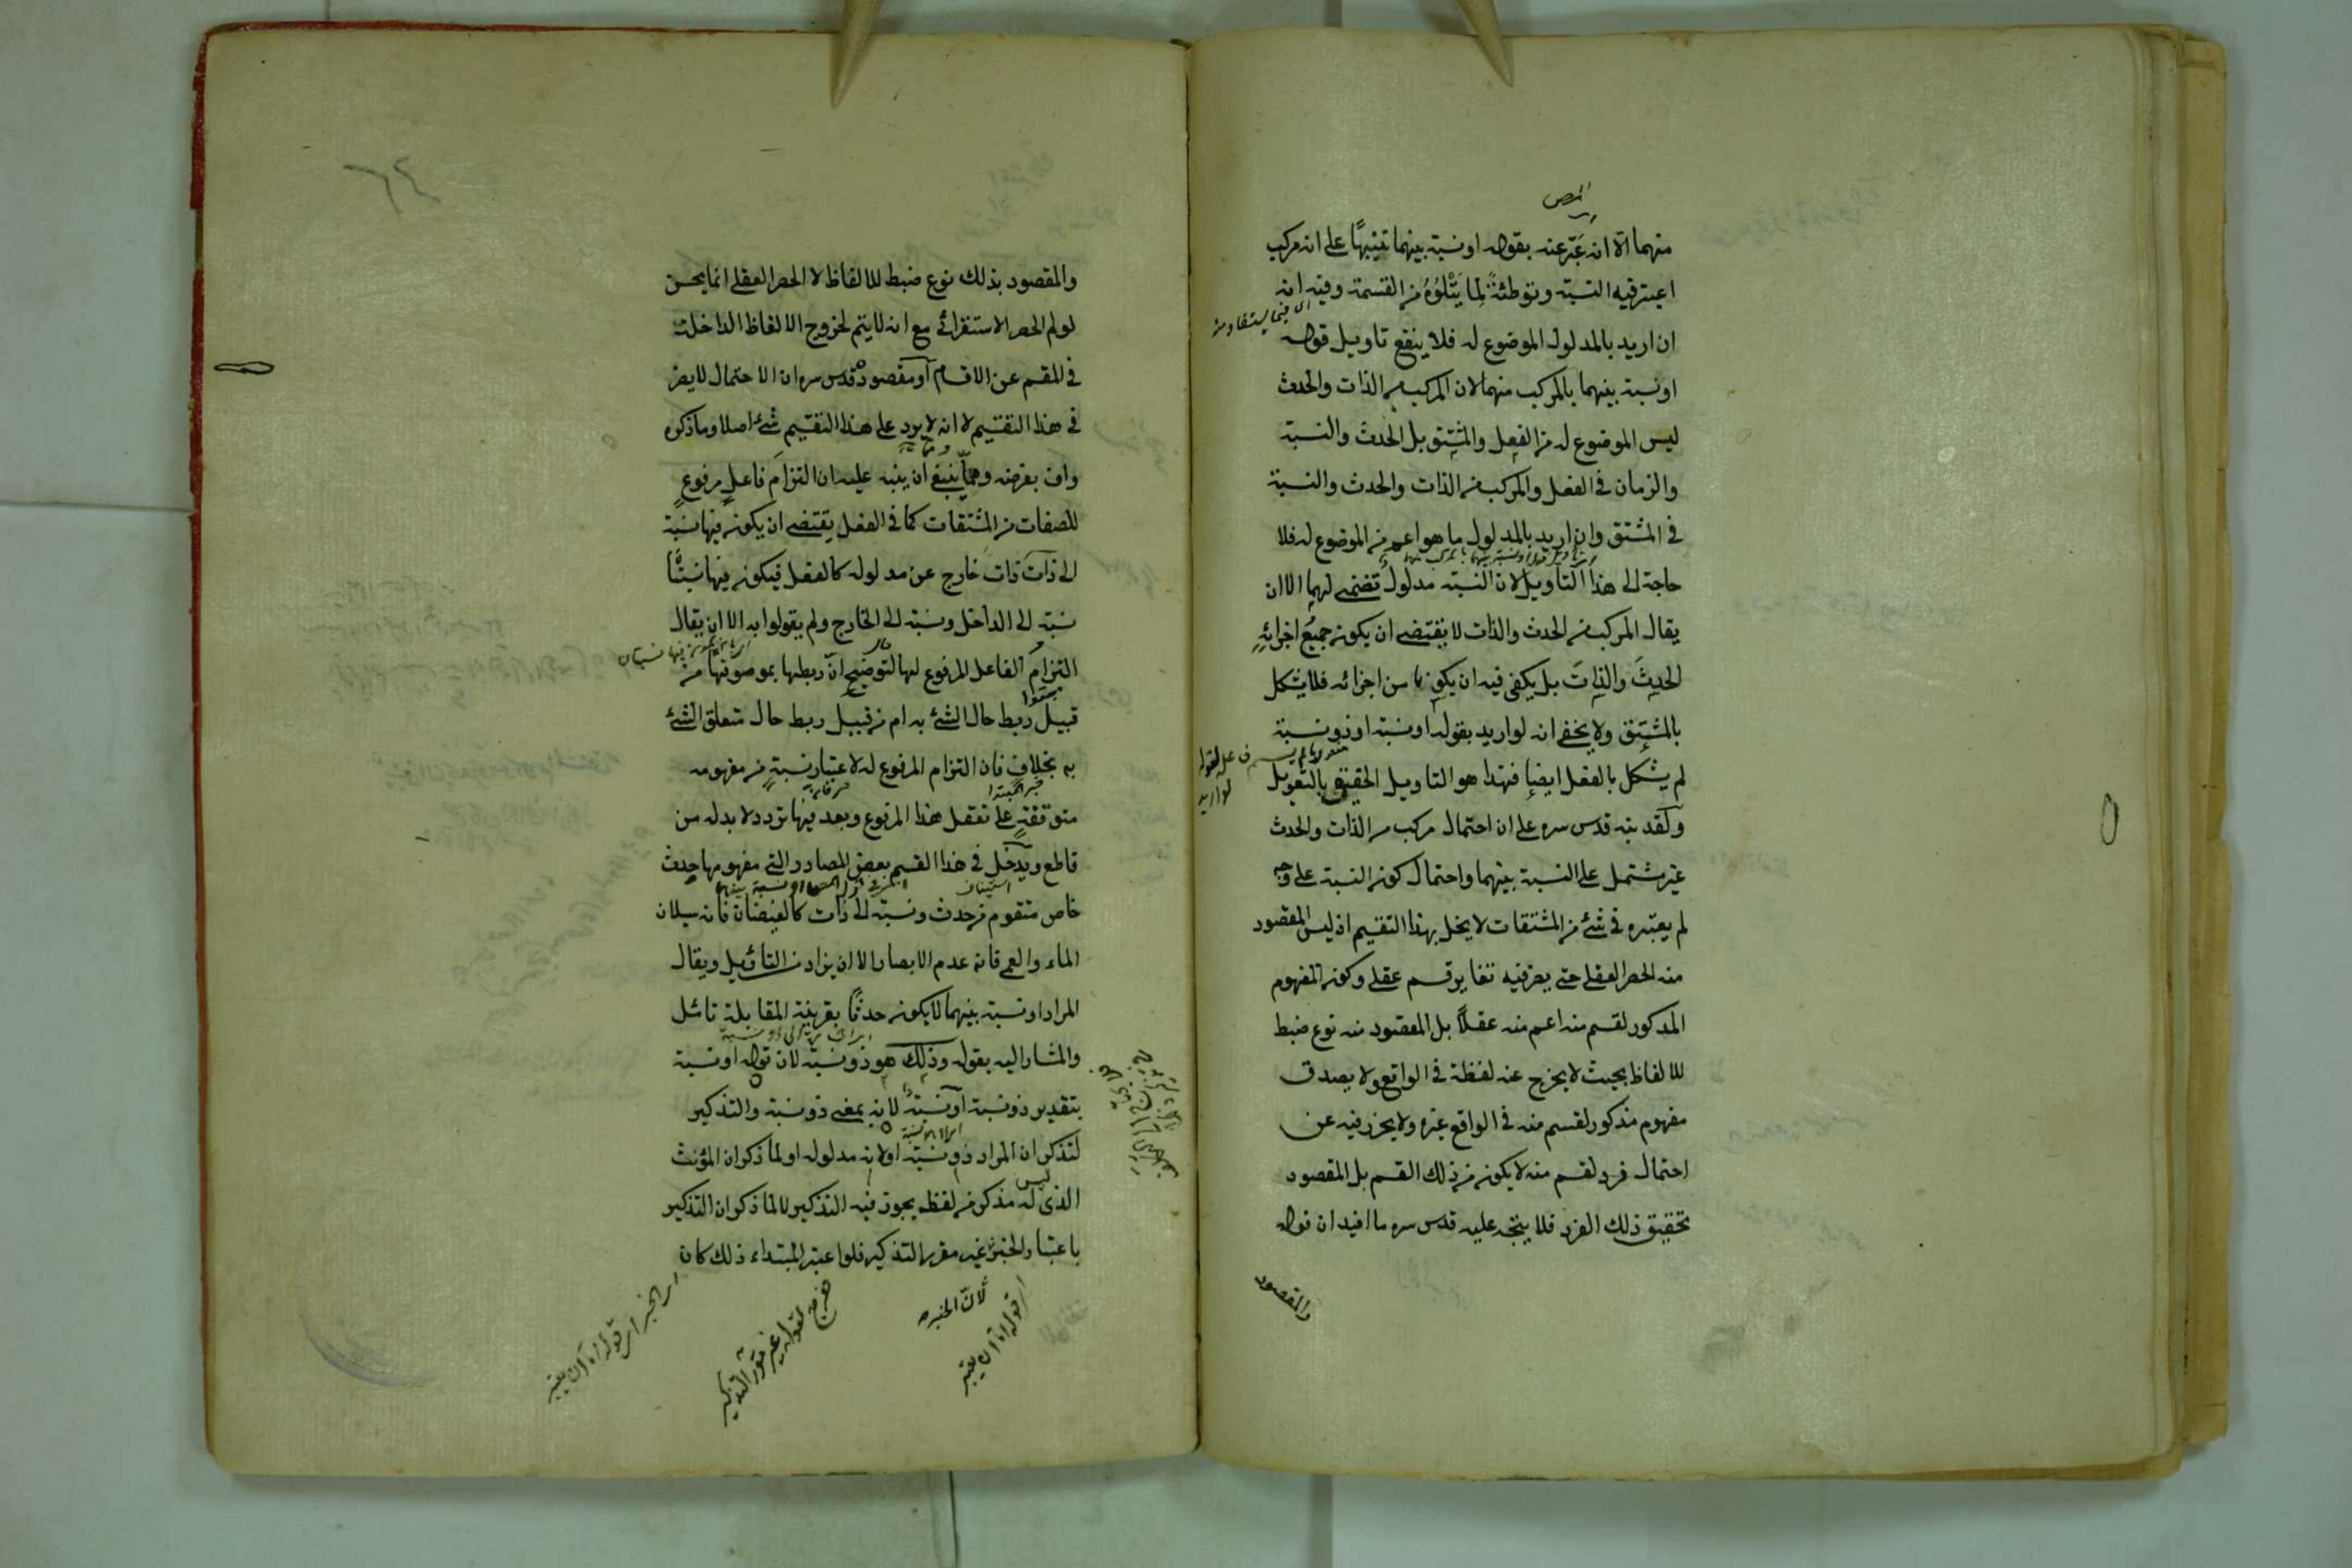 المص
منهما الا انه عَبّر عنه بقوله او نسبة بينهما تنبيهًا على انه مركب
اعتبر فيه النسبة وتوطئةً لِما يَتْلُوُهُ من القسمة وفيه انه
ان اريد بالمدلول الموضوع له فلا ينفع تاويل قوله
او نسبة بينهما بالمركب منهما لان المركب من الذات والحدث
ليس الموضوع له من الفعل والمشتق بل الحدث والنسبة
والزمان في الفعل والمركب من الذات والحدث والنسبة
في المشتق وان اريد بالمدلول ما هو اعم من الموضوع له فلا
حاجة الى هذا التاويل لان النسبة مدلول تضمنى لهما الا ان
يقال المركب من الحدث والذات لا يقتضى ان يكون جميعُ اجزائِهِ
الحدثَ والذاتَ بل يكفى فيه ان يكونا من اجزائه فلا يشكل
بالمشتق ولا يخفى انه لو اريد بقوله او نسبة او ذو نسبة
لم يشكل بالفعل ايضا فهذا هو التاويل الحقيق بالتعويل
ولقد نبه قدس سره على ان احتمال مركب من الذات والحدث
غير مشتمل على النسبة بينهما واحتمال كون النسبة على وجه
لم يعتبره في شئ من المشتقات لا يخل بهذا التقسيم اذ ليس المقصود
منه الحصر العقلى حتى يضر فيه تغاير قسم عقلى وكون المفهوم
المذكور لقسم منه اعم منه عقلاً بل المقصود منه نوع ضبط
للالفاظ بحيث لا يخرج عنه لفظة في الواقع ولا يصدق
مفهوم مذكور لقسم منه في الواقع غيره ولا يضر فيه عن
احتمال فرد لقسم منه لا يكون من ذلك القسم بل المقصود
تحقيق ذلك الفرد فلا يتجه عليه قدس سره ما افيد ان قوله
والمقصود
٦٤
والمقصود بذلك نوع ضبط للالفاظ لا الحصر العقلى انما يحسن
لو لم الحصر الاستقرائى مع انه لا يتم لخروج الالفاظ الداخلة
في المقسم عن الاقسام او مقصوده قدس سره ان الاحتمال لا يضر
في هذا التقسيم لا انه لا يرد على هذا التقسيم شئ اصلا وما ذكره
واف بغرضه ومما ينبغى ان ينبه عليه ان التزامَ فاعلٍ مرفوعٍ
للصفات من المشتقات كما في الفعل يقتضى ان يكون فيها نسبة
الى ذات ذات خارج عن مدلوله كالفعل فيكون فيها نسبتان
نسبة الى الداخل ونسبة الى الخارج ولم يقولوا به الا ان يقال
التزام الفاعل المرفوع لها لتوضيح انّ ربطها بموصوفها من
قبيل ربط حال الشئ به ام من قبيل ربط حال متعلق الشئ
به بخلافِ فان التزام المرفوع له لاعتبار نسبةٍ من مفهومه
متوقفةٍ على تعقل هذا المرفوع وبعد فيها تردد لا بد له من
قاطع ويدخل في هذا القسم بعض المصادر التى مفهومها حدث
خاص متقوم من حدث ونسبة الى ذات كالفيضان فانه سيلان
الماء والعمى فانه عدم الابصار الا ان يزاد من التاويل ويقال
المراد او نسبة بينهما لا يكون حدثًا بقرينة المقابلة تامل
والمشار اليه بقوله وذلك هو ذو نسبة لان قوله او نسبة
بتقدير ذو نسبة او نسبة لانه بمعنى ذو نسبة والتذكير
لتذكر ان المراد ذو نسبة او لانه مدلوله او لما ذكر ان المؤنث
الذى ليس له مذكر من لفظه يجوز فيه التذكير لا لما ذكر ان التذكير
باعتبار الخبر غير مقرر التذكير فلو اعتبر المبتداء ذلك كان
لانّ الخبر